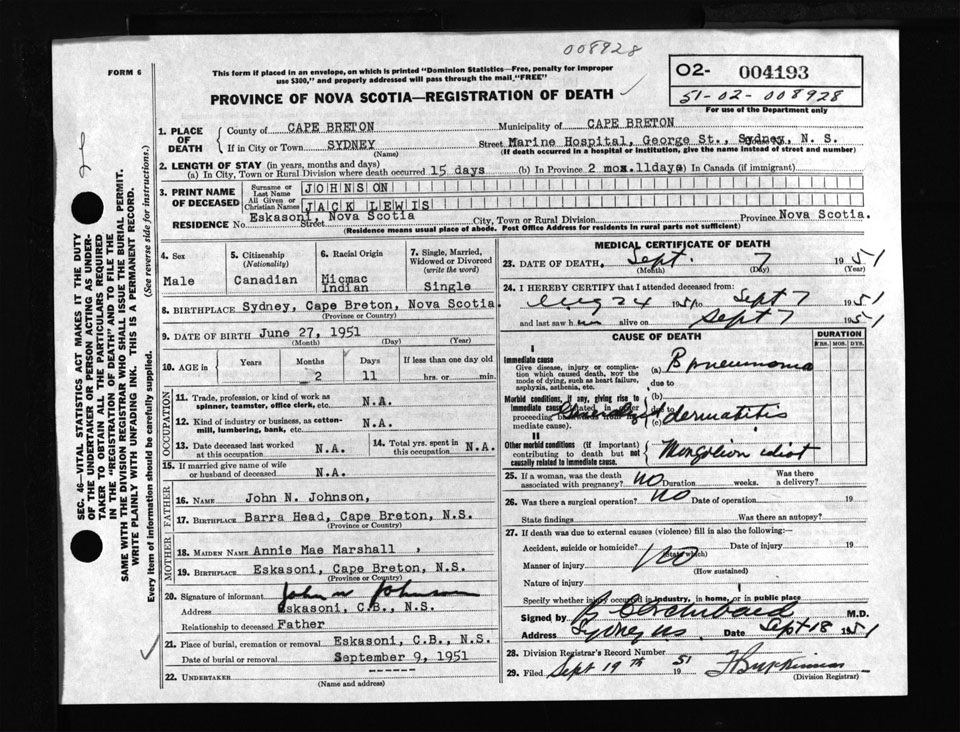 008928
FORM 6
This form if placed in an envelope, on which is printed "Dominion Statistics—Free, penalty for improper
use $300," and properly addressed will pass through the mail, "FREE"
O2- 004193
51-02-008928
For use of the Department only
PROVINCE OF NOVA SCOTIA—REGISTRATION OF DEATH
SEC. 46—VITAL STATISTICS ACT MAKES IT THE DUTY
OF THE UNDERTAKER OR PERSON ACTING AS UNDER-
TAKER TO OBTAIN ALL THE PARTICULARS REQUIRED
IN THE "REGISTRATION OF DEATH" AND TO FILE THE
SAME WITH THE DIVISION REGISTRAR WHO SHALL ISSUE THE BURIAL PERMIT.
WRITE PLAINLY WITH UNFADING INK. THIS IS A PERMANENT RECORD.
Every item of information should be carefully supplied. (See reverse side for instructions.)
1. PLACE OF DEATH
County of CAPE BRETON Municipality of CAPE BRETON
If in City or Town SYDNEY Street Marine Hospital, George St., Sydney, N. S.
(Name) (If death occurred in a hospital or institution, give the name instead of street and number)
2. LENGTH OF STAY (in years, months and days)
(a) In City, Town or Rural Division where death occurred 15 days (b) In Province 2 mos.11days (c) In Canada (if immigrant)
3. PRINT NAME OF DECEASED
Surname or Last Name JOHNSON
All Given or Christian Names JACK LEWIS
RESIDENCE No. Eskasoni, Nova Scotia Street City, Town or Rural Division Province Nova Scotia.
(Residence means usual place of abode. Post Office Address for residents in rural parts not sufficient)
4. Sex
Male
5. Citizenship
(Nationality)
Canadian
6. Racial Origin
Micmac
Indian
7. Single, Married,
Widowed or Divorced
(write the word)
Single
8. BIRTHPLACE Sydney, Cape Breton, Nova Scotia.
(Province or Country)
9. DATE OF BIRTH June 27, 1951
(Month) (Day) (Year)
10. AGE in Years Months Days If less than one day old
2 11 hrs. or min.
OCCUPATION
11. Trade, profession, or kind of work as
spinner, teamster, office clerk, etc. N.A.
12. Kind of industry or business, as cotton-
mill, lumbering, bank, etc. N.A.
13. Date deceased last worked
at this occupation N.A.
14. Total yrs. spent in
this occupation N.A.
15. If married give name of wife
or husband of deceased N.A.
FATHER
16. NAME John N. Johnson,
17. BIRTHPLACE Barra Head, Cape Breton, N.S.
(Province or Country)
MOTHER
18. MAIDEN NAME Annie Mae Marshall ,
19. BIRTHPLACE Eskasoni, Cape Breton, N.S.
(Province or Country)
20. Signature of informant John N Johnson
Address Eskasoni, C.B., N.S.
Relationship to deceased Father
21. Place of burial, cremation or removal Eskasoni, C.B., N.S.
Date of burial or removal September 9, 1951
22. UNDERTAKER ------
(Name and address)
MEDICAL CERTIFICATE OF DEATH
23. DATE OF DEATH Sept. 7 1951
(Month) (Day) (Year)
24. I HEREBY CERTIFY that I attended deceased from:
Aug 24 1951 to Sept 7 1951
and last saw him alive on Sept 7 1951
CAUSE OF DEATH
DURATION
YRS. MOS. DYS.
I
Immediate cause
Give disease, injury or complica-
tion which caused death, NOT the
mode of dying, such as heart failure,
asphyxia, asthenia, etc.
(a) B pneumonia
due to
Morbid conditions, if any, giving rise to
immediate cause (stated in order
proceeding backwards from im-
mediate cause)
(b)
due to
(c) dermatitis
II
Other morbid conditions (if important)
contributing to death but not
causally related to immediate cause.
Mongolion idiot
25. If a woman, was the death
associated with pregnancy? NO Duration weeks. Was there
a delivery?
26. Was there a surgical operation? NO Date of operation 19
State findings Was there an autopsy?
27. If death was due to external causes (violence) fill in also the following:—
Accident, suicide or homicide? NO Date of injury 19
(State which)
Manner of injury
(How sustained)
Nature of injury
Specify whether injury occurred in industry, in home, or in public place
Signed by B Archibald M.D.
Address Sydney NS. Date Sept 18 1951
28. Division Registrar's Record Number
29. Filed Sept 19th 1951
(Division Registrar)